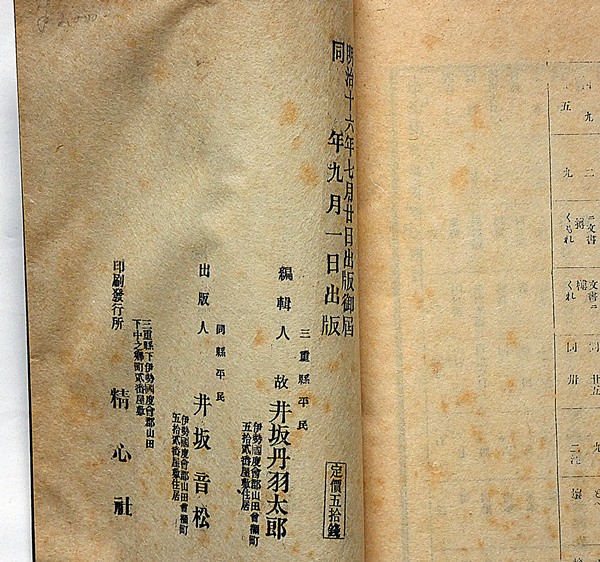 明治十六年七月廿日出版御屆
同年九月一日出版
定價五拾錢
三重縣平民
編輯人 故 井坂丹羽太郎
伊勢國度會郡山田曾禰町
五拾貳番屋敷住居
同縣平民
出版人 井坂音松
伊勢國度會郡山田曾禰町
五拾貳番屋敷住居
三重縣下伊勢國度會郡山田
下中之鄉町貳番屋敷
印刷發行所 精心社
九
五
二
九
文書
くもれ
文書
くれ